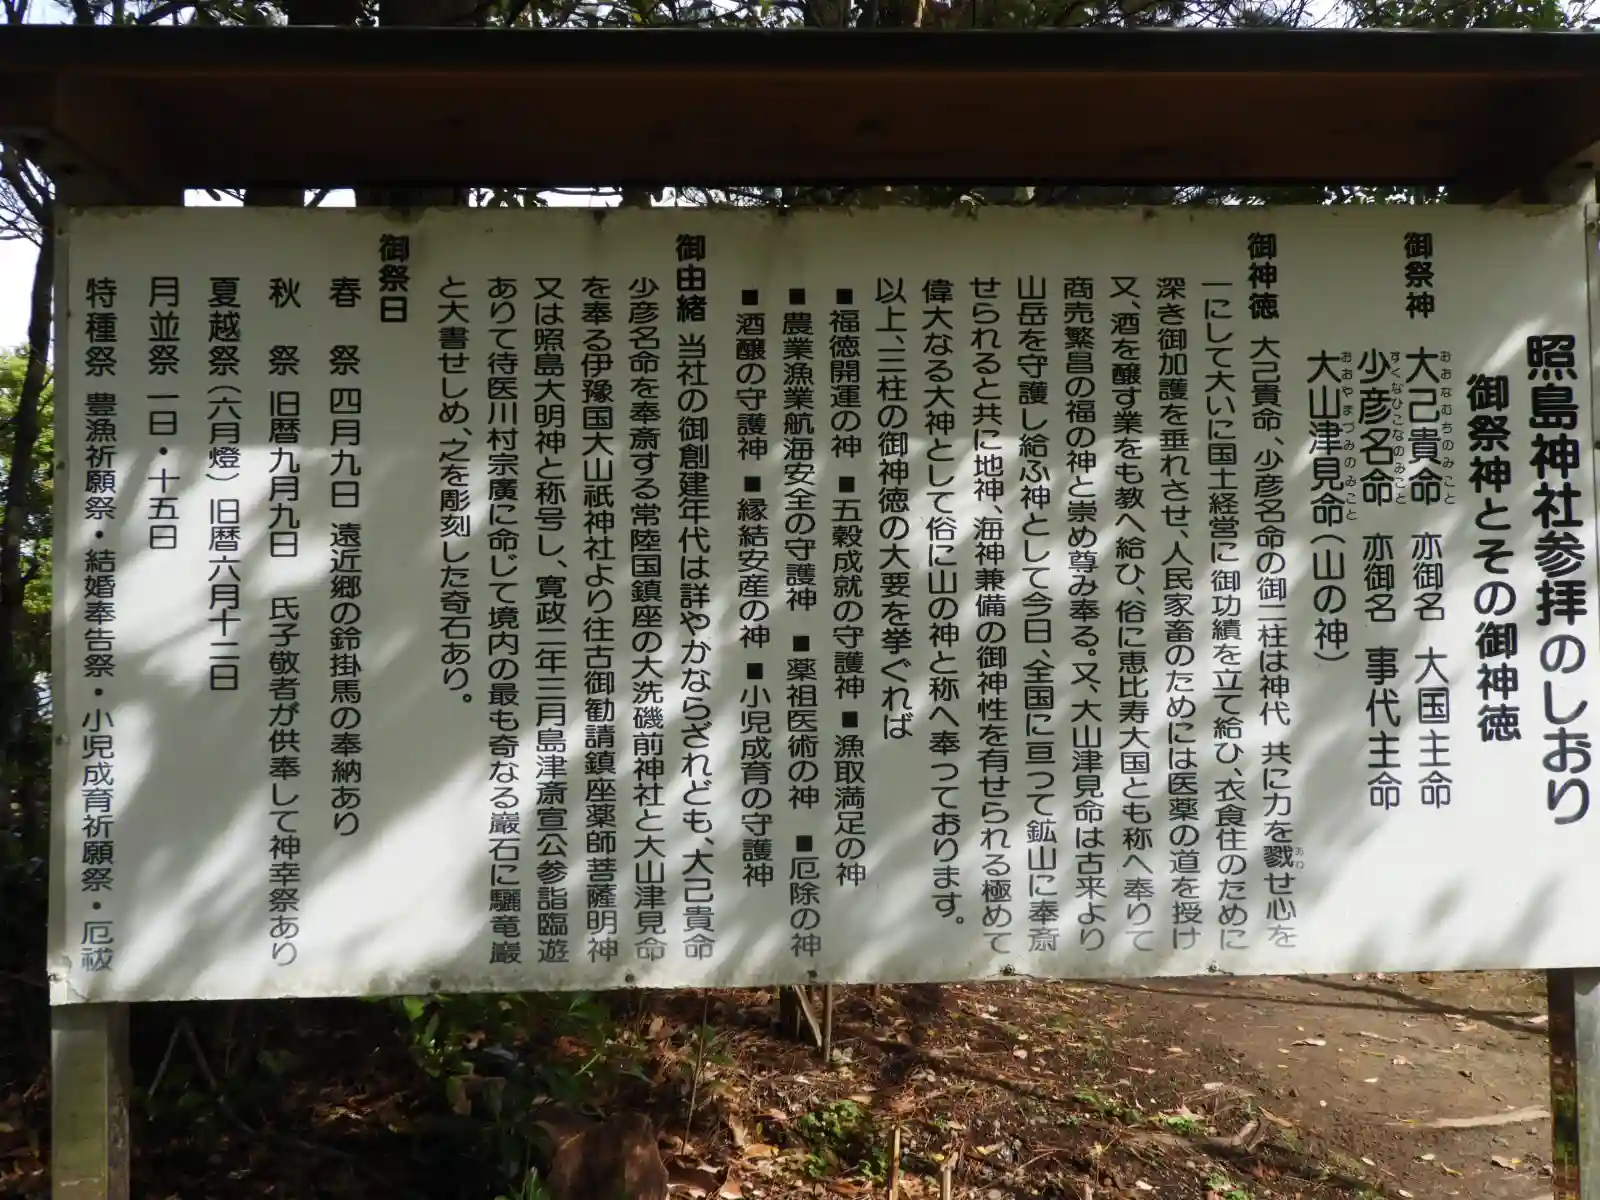 照島神社参拝のしおり
御祭神とその御神徳
御祭神 大己貴命 亦御名 大国主命
おおなむちのみこと
少彦名命 亦御名 事代主命
すくなひこなのみこと
大山津見命(山の神)
おおやまづみのみこと
御神徳 大己貴命、少彦名命の御二柱は神代 共に力を戮せ心を
あわ
一にして大いに国土経営に御功績を立て給ひ、衣食住のために
深き御加護を垂れさせ、人民家畜のためには医薬の道を授け
又、酒を醸す業をも教へ給ひ、俗に恵比寿大国とも称へ奉りて
商売繁昌の福の神と崇め尊み奉る。又、大山津見命は古来より
山岳を守護し給ふ神として今日、全国に亘って鉱山に奉斎
せられると共に地神、海神兼備の御神性を有せられる極めて
偉大なる大神として俗に山の神と称へ奉っております。
以上、三柱の御神徳の大要を挙ぐれば
■福徳開運の神 ■五穀成就の守護神 ■漁取満足の神
■農業漁業航海安全の守護神 ■薬祖医術の神 ■厄除の神
■酒醸の守護神 ■縁結安産の神 ■小児成育の守護神
御由緒 当社の御創建年代は詳やかならざれども、大己貴命
少彦名命を奉斎する常陸国鎮座の大洗磯前神社と大山津見命
を奉る伊豫国大山祇神社より往古御勧請鎮座薬師菩薩明神
又は照島大明神と称号し、寛政二年三月島津斎宣公参詣臨遊
ありて待医川村宗廣に命じて境内の最も奇なる巌石に驪竜巌
と大書せしめ、之を彫刻した奇石あり。
御祭日
春 祭 四月九日 遠近郷の鈴掛馬の奉納あり
秋 祭 旧暦九月九日 氏子敬者が供奉して神幸祭あり
夏越祭(六月燈)旧暦六月十二日
月並祭 一日・十五日
特種祭 豊漁祈願祭・結婚奉告祭・小児成育祈願祭・厄祓